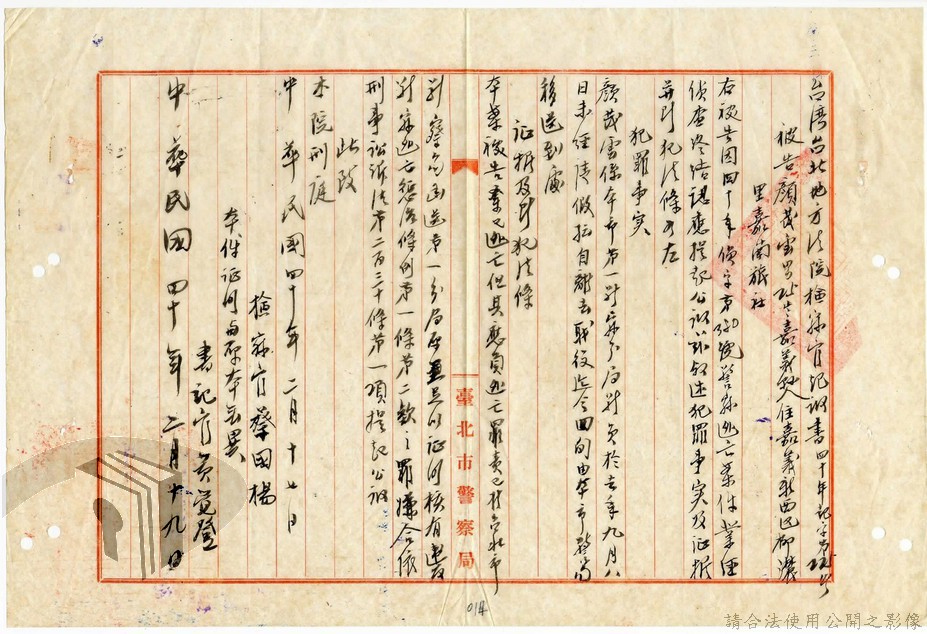 台湾台北地方法院檢察官起訴書四十年起字第　号
被告顏茂雲男　嘉義人住嘉義新西区柳溝
里嘉蘭旅社
右被告因四十年偵字第　號警察逃亡案件業經
偵查終結認應提起公訴茲敘述犯罪事实及証据
並所犯法條如左
犯罪事实
顏茂雲係本市第一警察分局警員於去年九月八
日未經請假擅自離去職役迄今回旬由本市警局
移送到處
証据及所犯法條
本案被告業已逃亡但其應負逃亡罪責已据台北市
警察局函送第一分局　足以証明核有違反
警察逃亡懲治條例第一條第二款之罪嫌合依
刑事訴訟法第二百三十條第一項提起公訴
此致
本院刑庭
中華民國四十年二月十七日
檢察官蔡國楊
本件証明与原本無異
書記官黃覺登
中華民国四十年二月十九日
臺北市警察局
014
請合法使用公開之影像